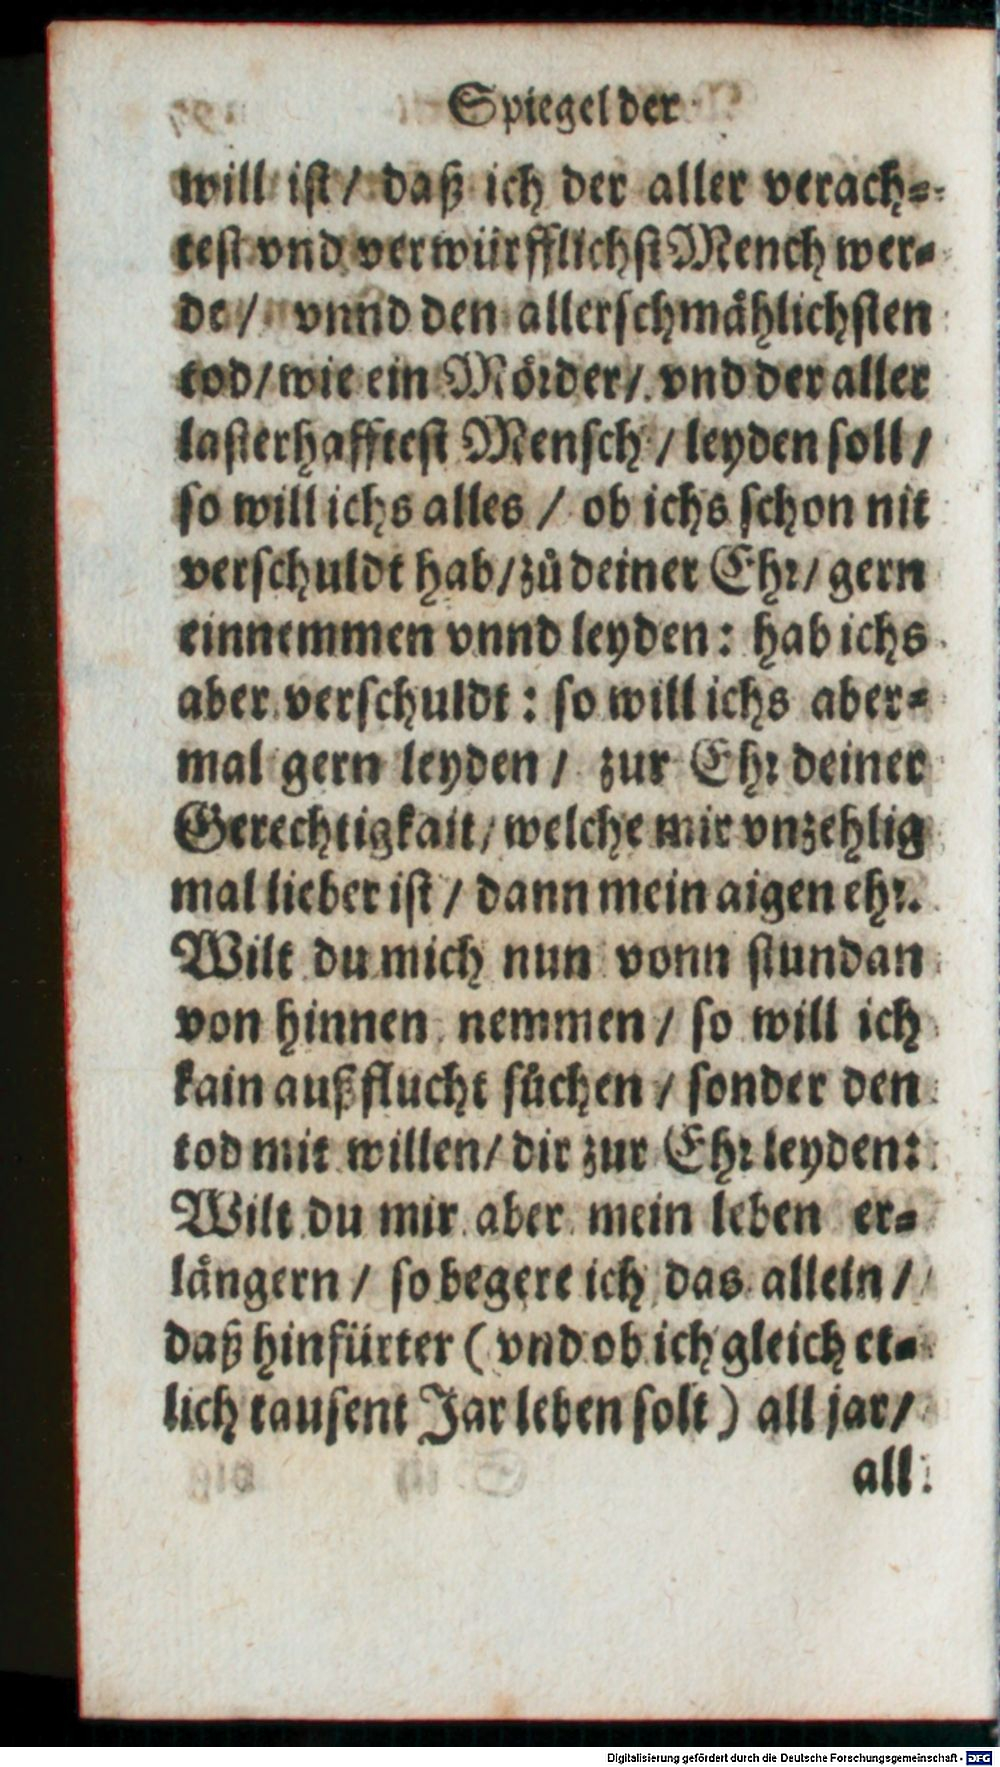 Spiegel der
will ist / daß ich der aller verach⸗
test vnd verwürfflichst Mench wer⸗
de / vnnd den allerschmåhlichsten
tod / wie ein Mörder / vnd der aller
lasterhafftest Mensch / leyden soll /
so will ichs alles / ob ichs schon nit
verschuldt hab / zů deiner Ehr / gern
einnemmen vnnd leyden : hab ichs
aber verschuldt : so will ichs aber⸗
mal gern leyden / zur Ehr deiner
Gerechtigkait / welche mir vnzehlig
mal lieber ist / dann mein aigen ehr.
Wilt du mich nun vonn stundan
von hinnen nemmen / so will ich
kain außflucht sůchen / sonder den
tod mit willen / dir zur Ehr leyden:
Wilt du mir aber mein leben er⸗
långern / so begere ich das allein /
daß hinfürter ( vnd ob ich gleich et⸗
lich tausent Jar leben solt ) all jar /
all
Digitalisierung gefördert durch die Deutsche Forschungsgemeinschaft - DFG